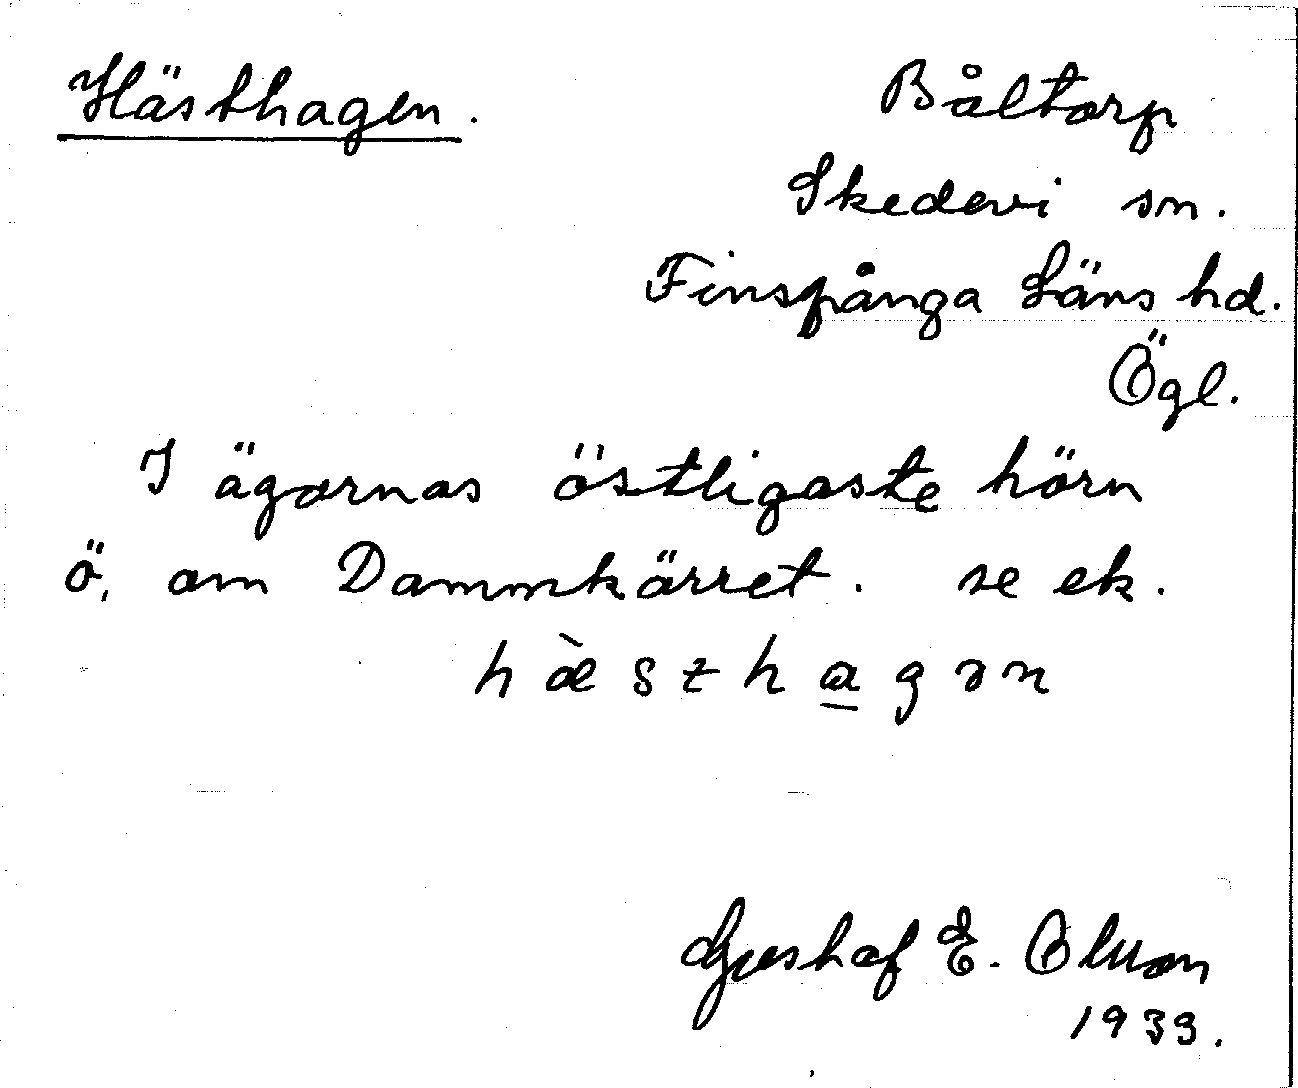 Hästhagen.
Båltorp
Skedevi sn.
Finspånga Läns hd.
Ögl.
I ägornas östligaste hörn
ö. om Dammkärret. se ek.
hæ̀stha̲gən
Gustaf E. Olsson
1933.